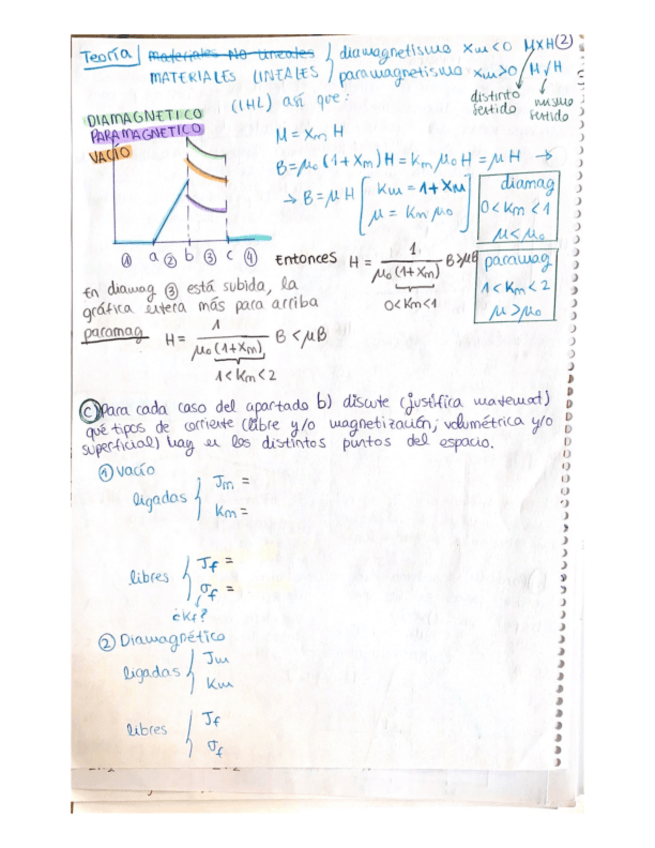 Teoría | materiales No lineales / diamagnetismo Xm<0 M⤫H (2)
MATERIALES LINEALES / paramagnetismo Xm>0 / M ∕ H
distinto sentido mismo sentido
(IHL) así que:
DIAMAGNETICO
PARAMAGNETICO
VACÍO
M = Xm H
B = μ₀ (1 + Xm) H = Km μ₀ H = μ H →
→ B = μ H [ Km = 1 + Xm
μ = Km μ₀ ]
diamag
0 < Km < 1
μ < μ₀
① a ② b ③ c ④
Entonces H = 1 / μ₀ (1+Xm) B > μB
0 < Km < 1
paramag
1 < Km < 2
μ > μ₀
En diamag ③ está subida, la
gráfica entera más para arriba
paramag H = 1 / μ₀ (1+Xm) B < μB
1 < Km < 2
ⓒ Para cada caso del apartado b) discute (justifica matemat)
qué tipos de corriente (libre y/o magnetización; volumétrica y/o
superficial) hay en los distintos puntos del espacio.
① Vacío
ligadas { Jm =
Km =
libres { Jf =
σf =
¿Kf?
② Diamagnético
ligadas { Jm
Km
libres { Jf
σf